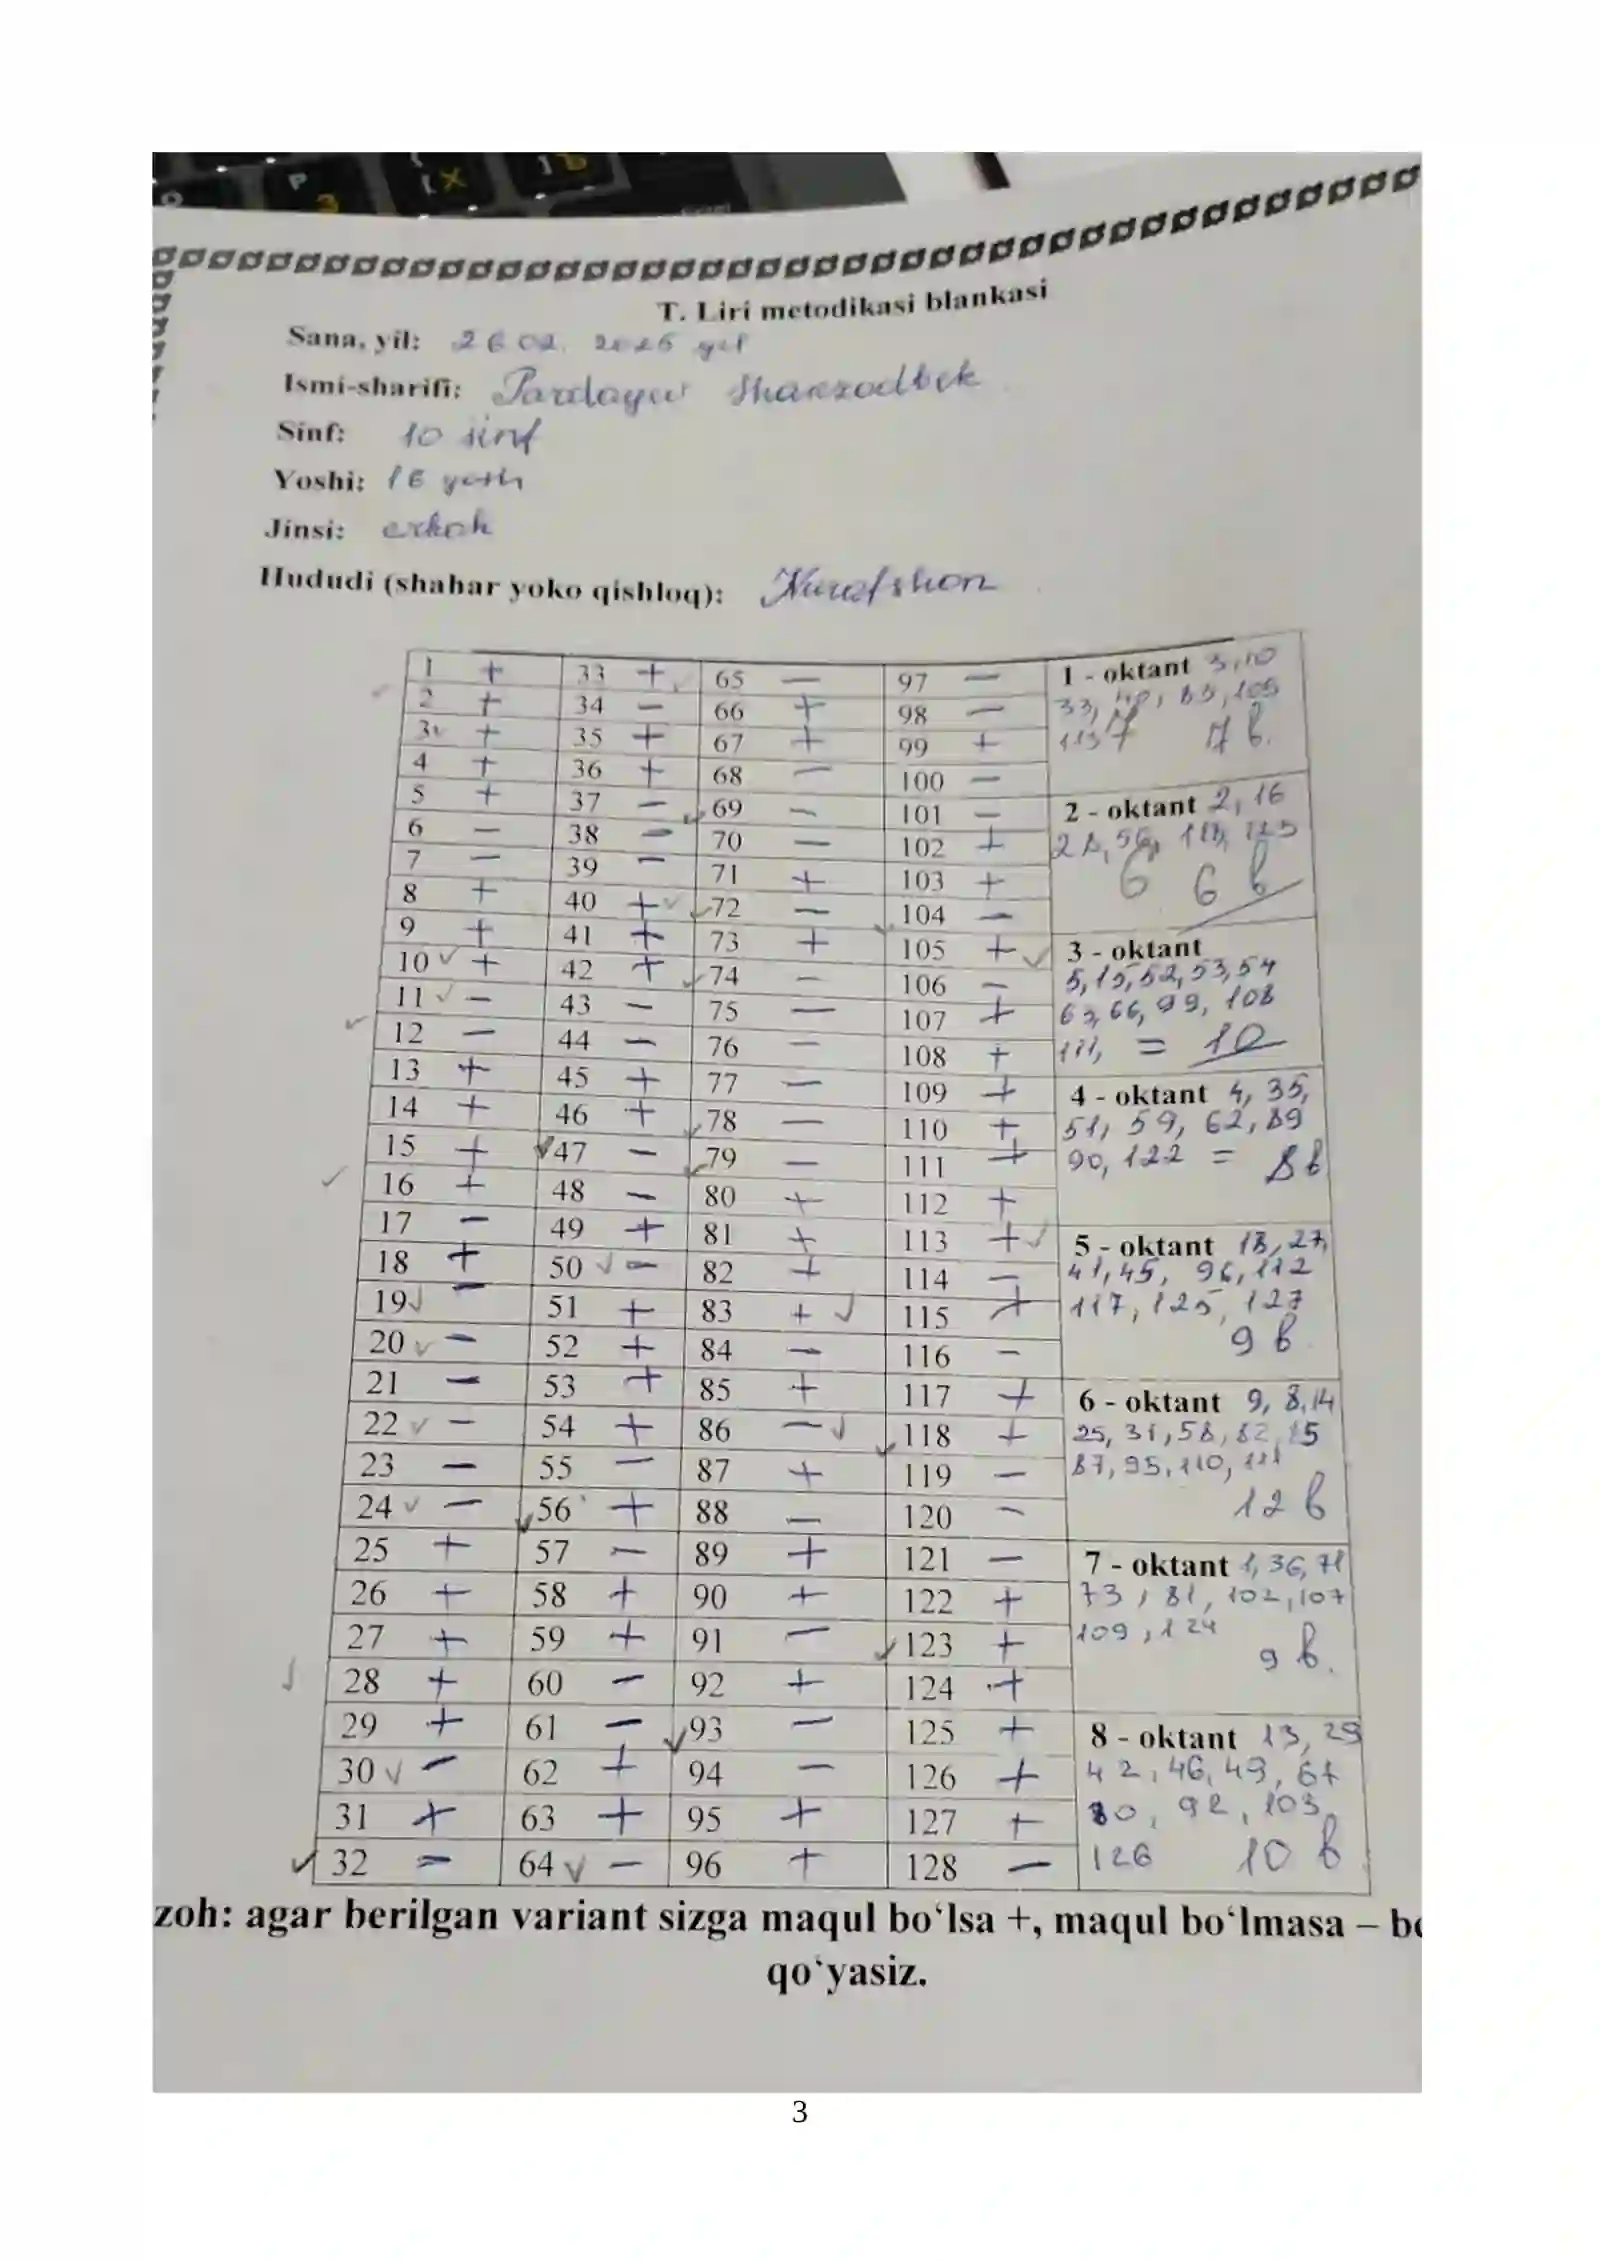 T. Liri metodikasi blankasi
Sana, yil: 26 02. 2025 yil
Ismi-sharifi: Pardayev Shaxzodbek
Sinf: 10 sinf
Yoshi: 16 yosh
Jinsi: erkak
Hududi (shahar yoko qishloq): Nurafshon
1 + 33 + 65 — 97 — 1 - oktant 3,10
2 + 34 — 66 + 98 — 33, 40, 83, 105
3 + 35 + 67 + 99 + 113 7 7 b.
4 + 36 + 68 — 100 —
5 + 37 — 69 — 101 — 2 - oktant 2, 16
6 — 38 — 70 — 102 + 28, 56, 118, 123
7 — 39 — 71 + 103 + 6 6 b
8 + 40 + 72 — 104 —
9 + 41 + 73 + 105 + 3 - oktant
10 + 42 + 74 — 106 — 5, 15, 52, 53, 54
11 — 43 — 75 — 107 + 63, 66, 99, 108
12 — 44 — 76 — 108 + 111, = 10
13 + 45 + 77 — 109 + 4 - oktant 4, 35,
14 + 46 + 78 — 110 + 51, 59, 62, 89
15 + 47 — 79 — 111 + 90, 122 = 8 b
16 + 48 — 80 + 112 +
17 — 49 + 81 + 113 + 5 - oktant 18, 27,
18 + 50 — 82 + 114 — 41, 45, 96, 112
19 — 51 + 83 + 115 + 117, 125, 127
20 — 52 + 84 — 116 — 9 b
21 — 53 + 85 + 117 + 6 - oktant 9, 8, 14
22 — 54 + 86 — 118 + 25, 31, 58, 82, 85
23 — 55 — 87 + 119 — 87, 95, 110, 111
24 — 56 + 88 — 120 — 12 b
25 + 57 — 89 + 121 — 7 - oktant 1, 36, 71
26 + 58 + 90 + 122 + 73, 81, 102, 107
27 + 59 + 91 — 123 + 109, 124
28 + 60 — 92 + 124 + 9 b.
29 + 61 — 93 — 125 + 8 - oktant 13, 29
30 — 62 + 94 — 126 + 42, 46, 49, 67
31 + 63 + 95 + 127 + 80, 92, 103,
32 — 64 — 96 + 128 — 126 10 b
zoh: agar berilgan variant sizga maqul bo‘lsa +, maqul bo‘lmasa – be
qo‘yasiz.
3